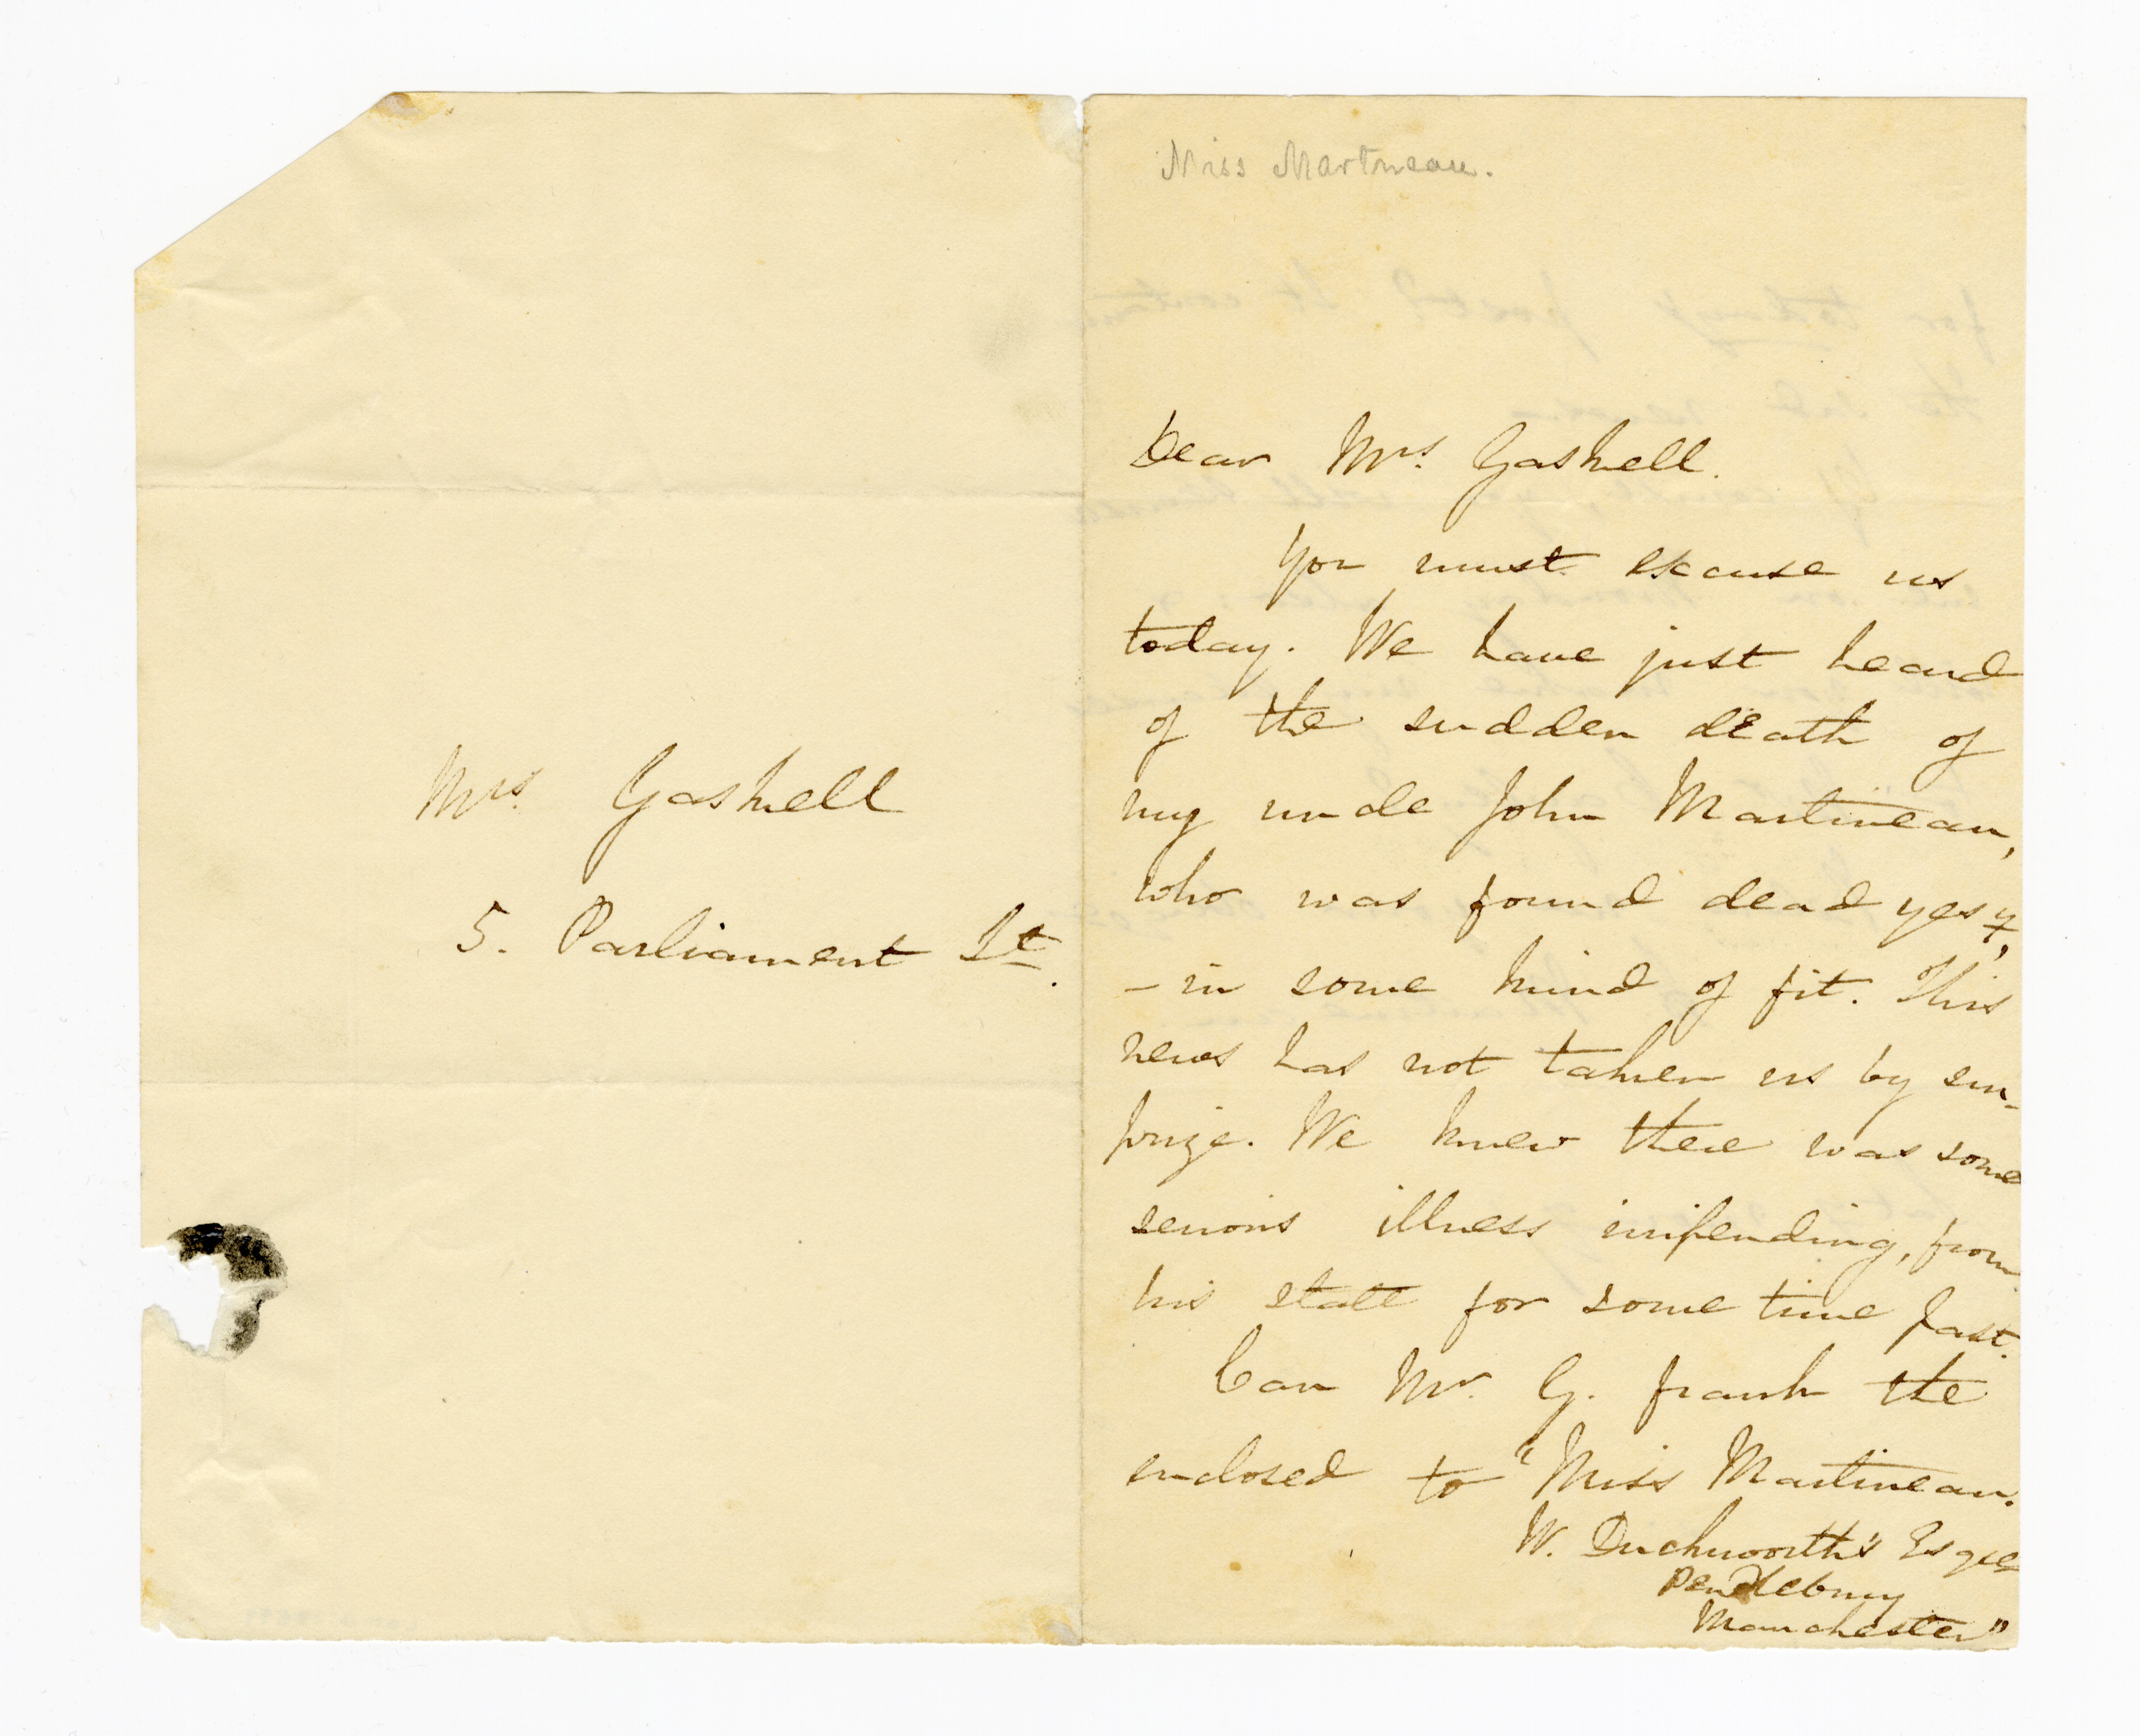 Mrs. Gaskell
5. Parliament St.
Miss Martineau.
Dear Mrs. Gaskell.
You must excuse us
today. We have just heard
of the sudden death of
my uncle John Martineau,
who was found dead yesy,
– in some kind of fit. This
news has not taken us by sur-
prize. We knew there was some
serious illness impending, from
his state for some time past.
Can Mr. G. frank the
enclosed to "Miss Martineau.
W. Duckworth's Esqre
Pendlebury
Manchester"